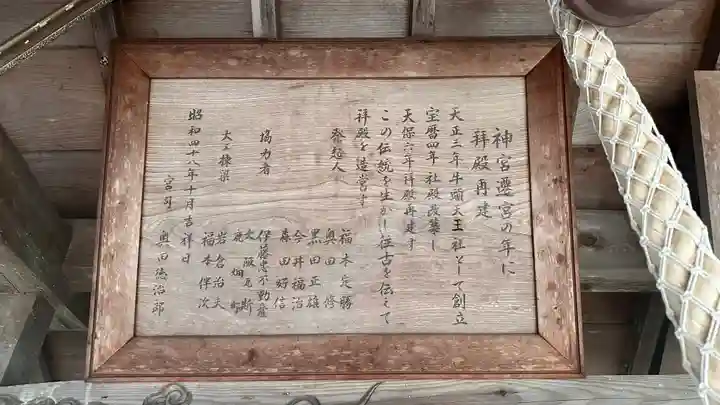 神宮遷宮の年に
拝殿再建
天正三年牛頭天王社として創立
宝暦四年社殿改築し
天保六年拝殿再建す
この伝統を生かし往古を伝えて
拝殿を造営す
発起人
福本定勝
奥田修
黒田正雄
今井福治
森田好信
協力者
伊藤忠不動産
大阪瓦斯
鹿畑町
大工棟梁
岩倉治夫
福本伴次
昭和四十八年十月吉祥日
宮司
奥田徳治郎